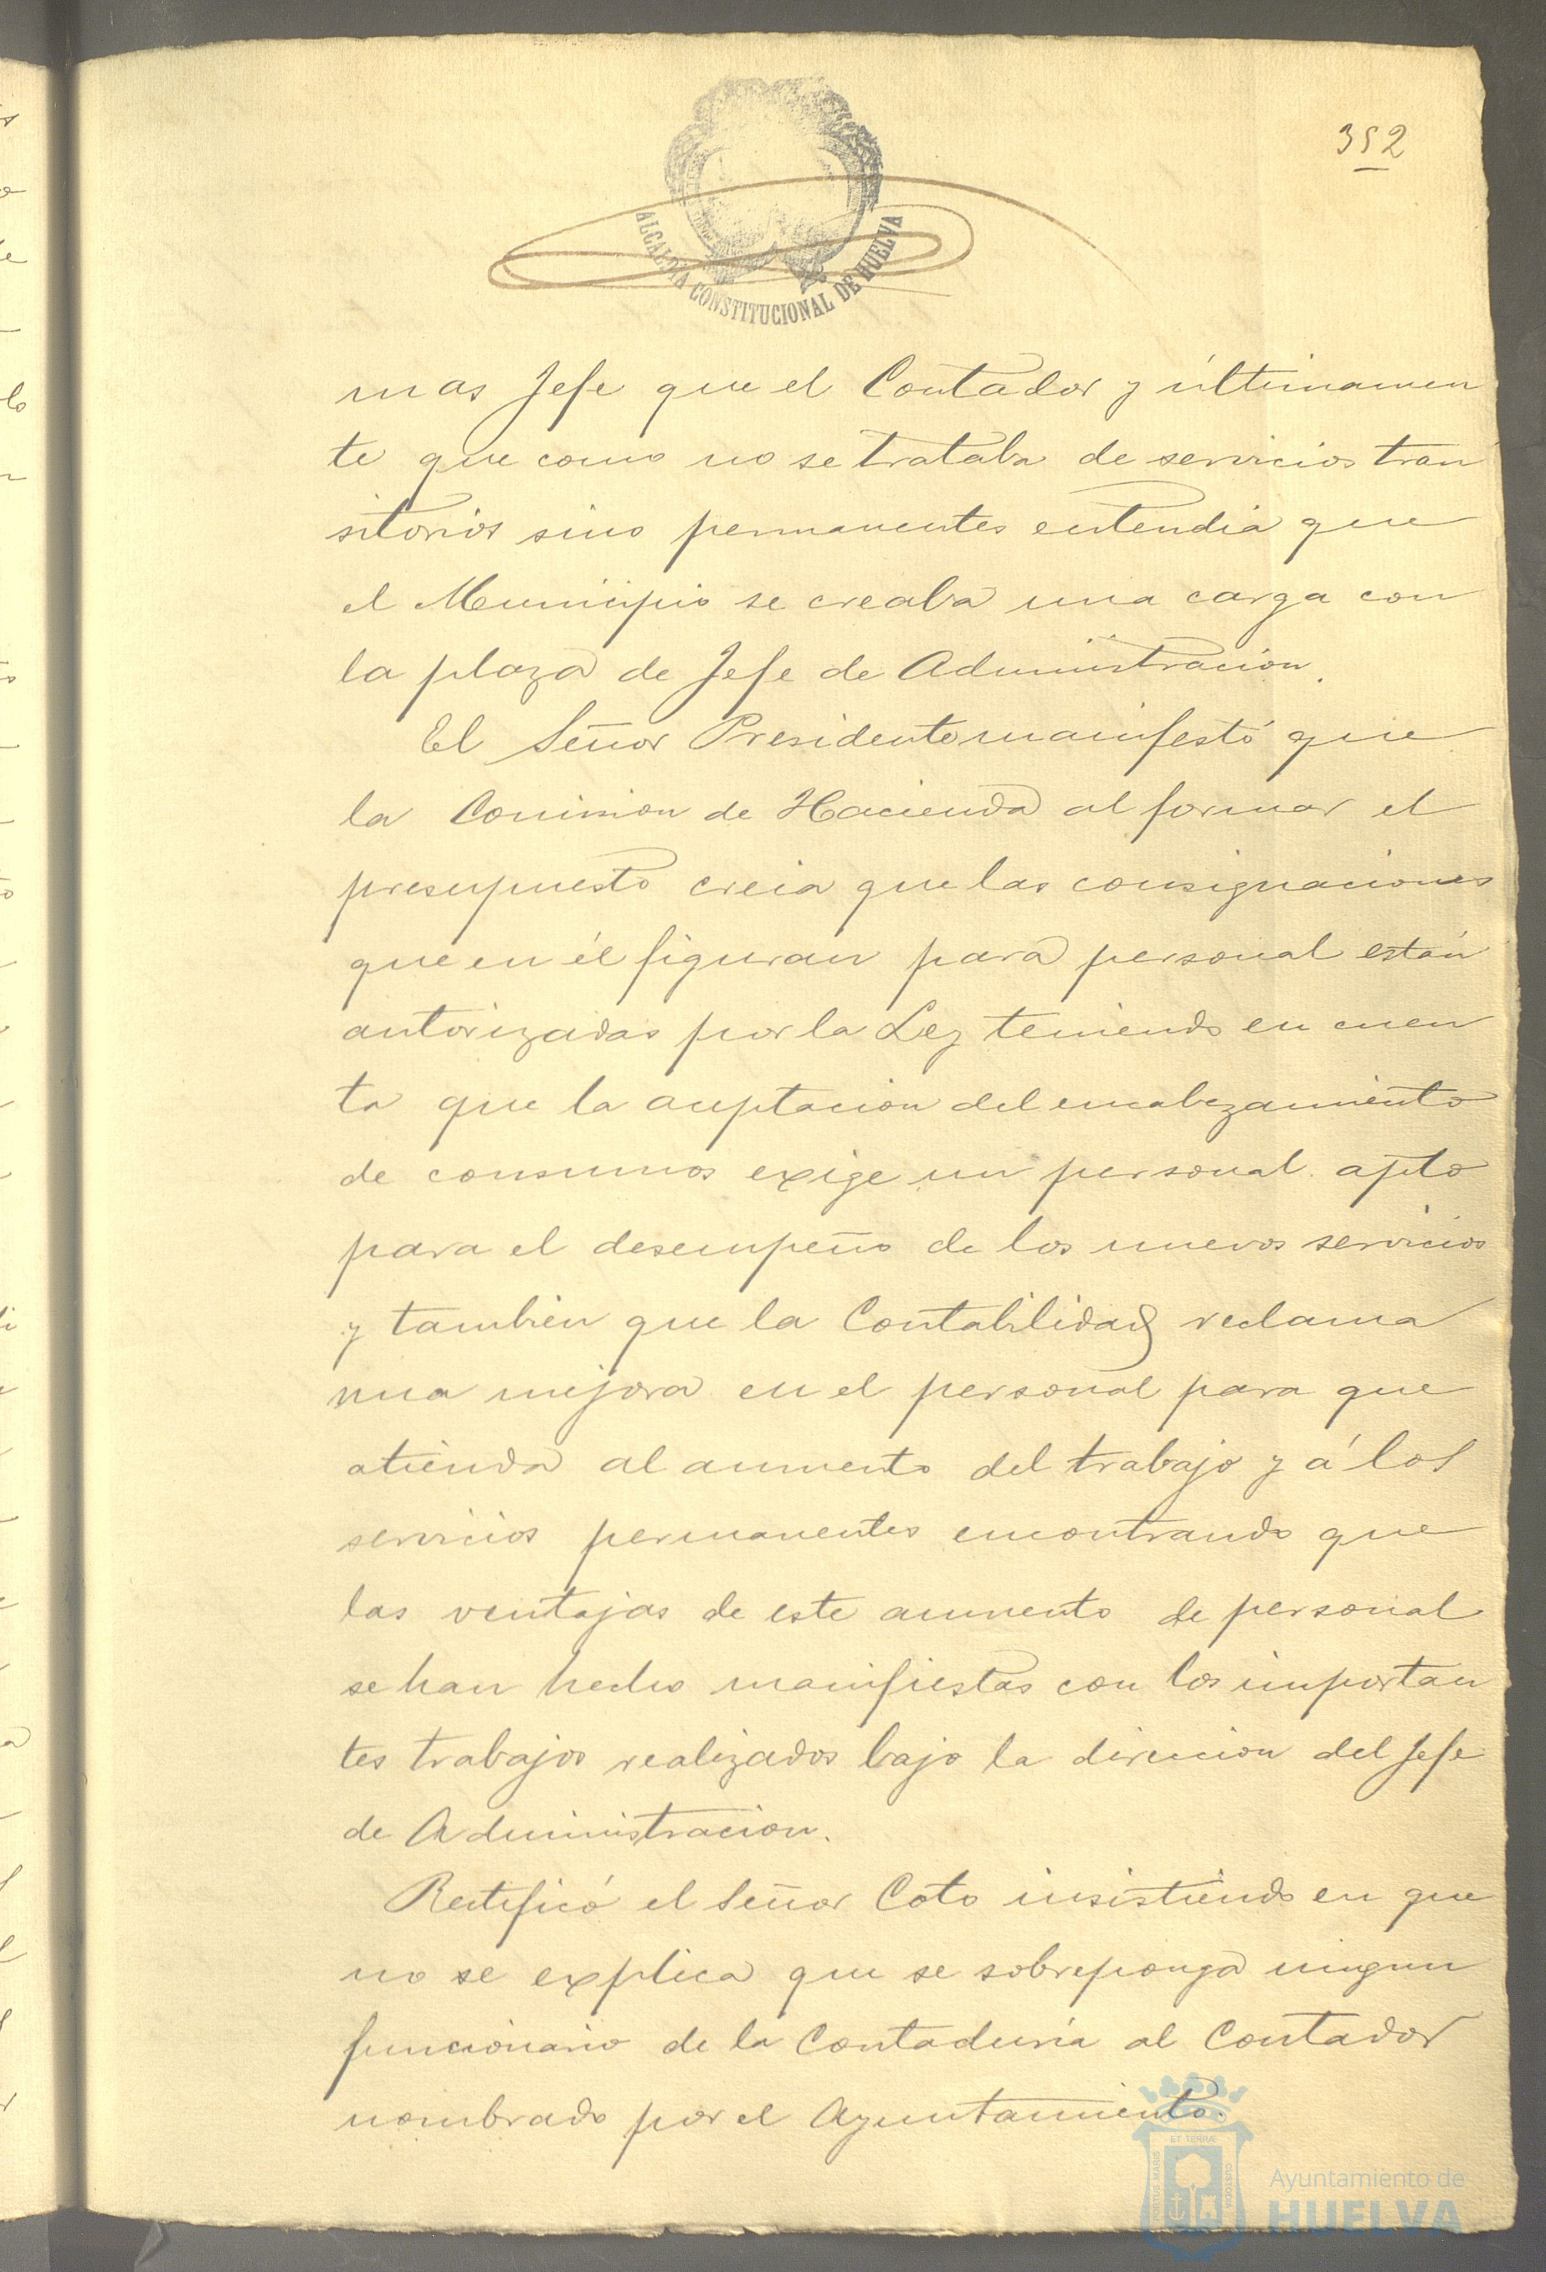 352
ALCALDÍA CONSTITUCIONAL DE HUELVA
mas Jefe que el Contador y últimamen
te que como no se trataba de servicios tran
sitorios sino permanentes entendia que
el Municipio se creaba una carga con
la plaza de Jefe de Administracion.
El Señor Presidente manifestó que
la Comision de Hacienda al formar el
presupuesto creia que las consignaciones
que en él figuran para personal están
autorizadas por la Ley teniendo en cuen
ta que la aceptacion del encabezamiento
de consumos exige un personal apto
para el desempeño de los nuevos servicios
y tambien que la Contabilidad reclama
una mejora en el personal para que
atienda al aumento del trabajo y á los
servicios permanentes encontrando que
las ventajas de este aumento de personal
se han hecho manifiestas con los importan
tes trabajos realizados bajo la direccion del Jefe
de Administracion.
Rectificó el Señor Coto insistiendo en que
no se explica que se sobreponga ningun
funcionario de la Contaduría al Contador
nombrado por el Ayuntamiento.
PORTUS MARIS ET TERRAE CUSTODIA
Ayuntamiento de
HUELVA